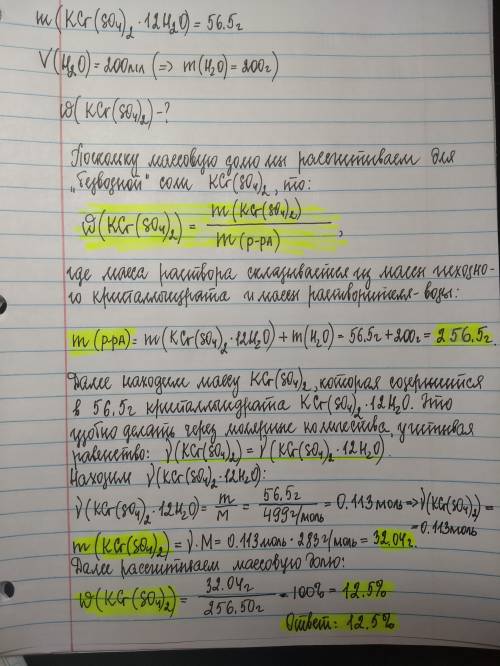 m(KCr(SO₄)₂·12H₂O)=56.5г
V(H₂O)=200мл (=> m(H₂O)=200г)
ω(KCr(SO₄)₂)-?
Поскольку массовую долю мы рассчитываем для
"безводной" соли KCr(SO₄)₂, то:
ω(KCr(SO₄)₂) = m(KCr(SO₄)₂) / m(р-ра),
где масса раствора складывается из массы исходно-
го кристаллогидрата и массы растворителя-воды:
m(р-ра)=m(KCr(SO₄)₂·12H₂O)+m(H₂O)=56.5г+200г=256.5г.
Далее находим массу KCr(SO₄)₂, которая содержится
в 56.5г кристаллогидрата KCr(SO₄)₂·12H₂O. Это
удобно делать через молярные количества, учитывая
равенство: ν(KCr(SO₄)₂)=ν(KCr(SO₄)₂·12H₂O).
Находим ν(KCr(SO₄)₂·12H₂O):
ν(KCr(SO₄)₂·12H₂O)= m/M = 56.5г / 499г/моль = 0.113моль=>ν(KCr(SO₄)₂)=
=0.113моль
m(KCr(SO₄)₂)=ν·M=0.113моль·283г/моль=32.04г.
Далее рассчитываем массовую долю:
ω(KCr(SO₄)₂)= 32.04г / 256.50г · 100% = 12.5%
Ответ: 12.5%